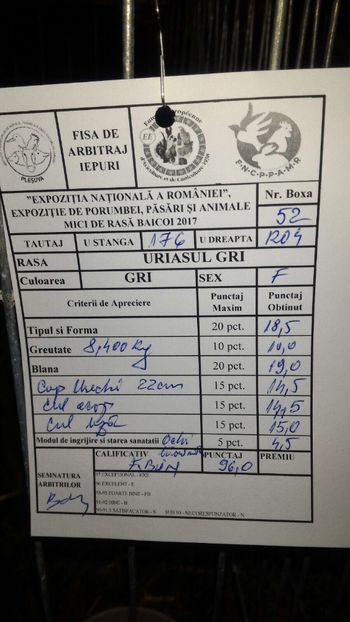 PLEȘUVA
Européenne
d'Aviculture et de Cuniculture 1938
EE
F-N-C-P-P-A-M-R
FISA DE
ARBITRAJ
IEPURI
"EXPOZIȚIA NAȚIONALĂ A ROMÂNIEI",
EXPOZIȚIE DE PORUMBEI, PĂSĂRI ȘI ANIMALE
MICI DE RASĂ BAICOI 2017
Nr. Boxa
52
TATUAJ U STANGA 176 U DREAPTA RO4
RASA URIASUL GRI
Culoarea GRI SEX F
Criterii de Apreciere Punctaj Maxim Punctaj Obtinut
Tipul si Forma 20 pct. 18,5
Greutate 8,400 Kg 10 pct. 10,0
Blana 20 pct. 19,0
Cap Urechi 22cm 15 pct. 14,5
Cul 15 pct. 14,5
Cul 15 pct. 15,0
Modul de ingrijire si starea sanatatii Ochi 5 pct. 4,5
CALIFICATIV PUNCTAJ PREMIU
F. BUN 96,0
SEMNATURA
ARBITRILOR
97 EXCEPTIONAL - EXS
96 EXCELENT - E
FOARTE BINE - FB
BINE - B
SATISFACATOR - S SUB 90 - NECORESPUNZATOR - N